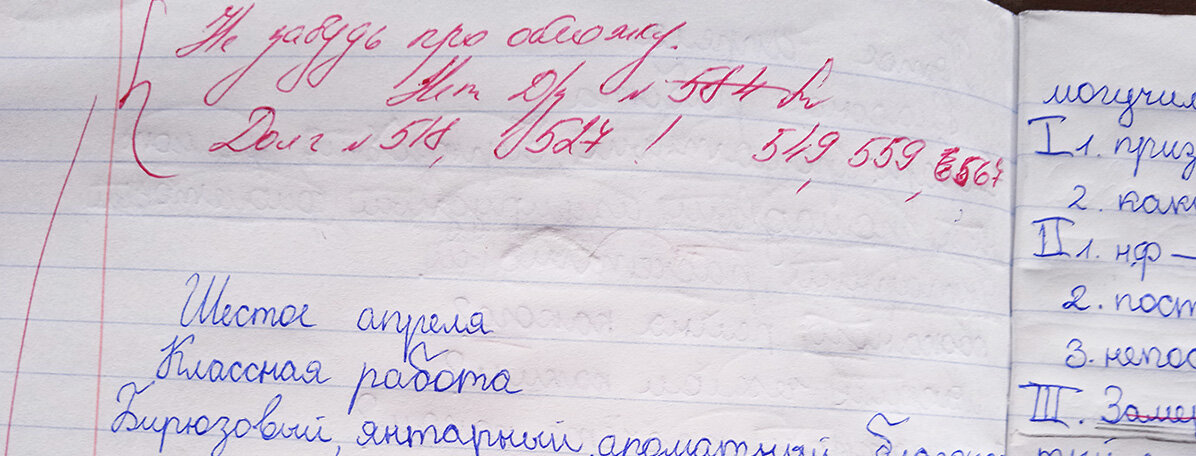 Не забудь про обложку.
Нет Д/з № 584
Долг № 518, 527 ! 549, 559, 567
Шестое апреля
Классная работа
Бирюзовый, янтарный, ароматный,
могучи
I 1. приз
2. как
II 1. нф –
2. пост
3. непос
III. Заме